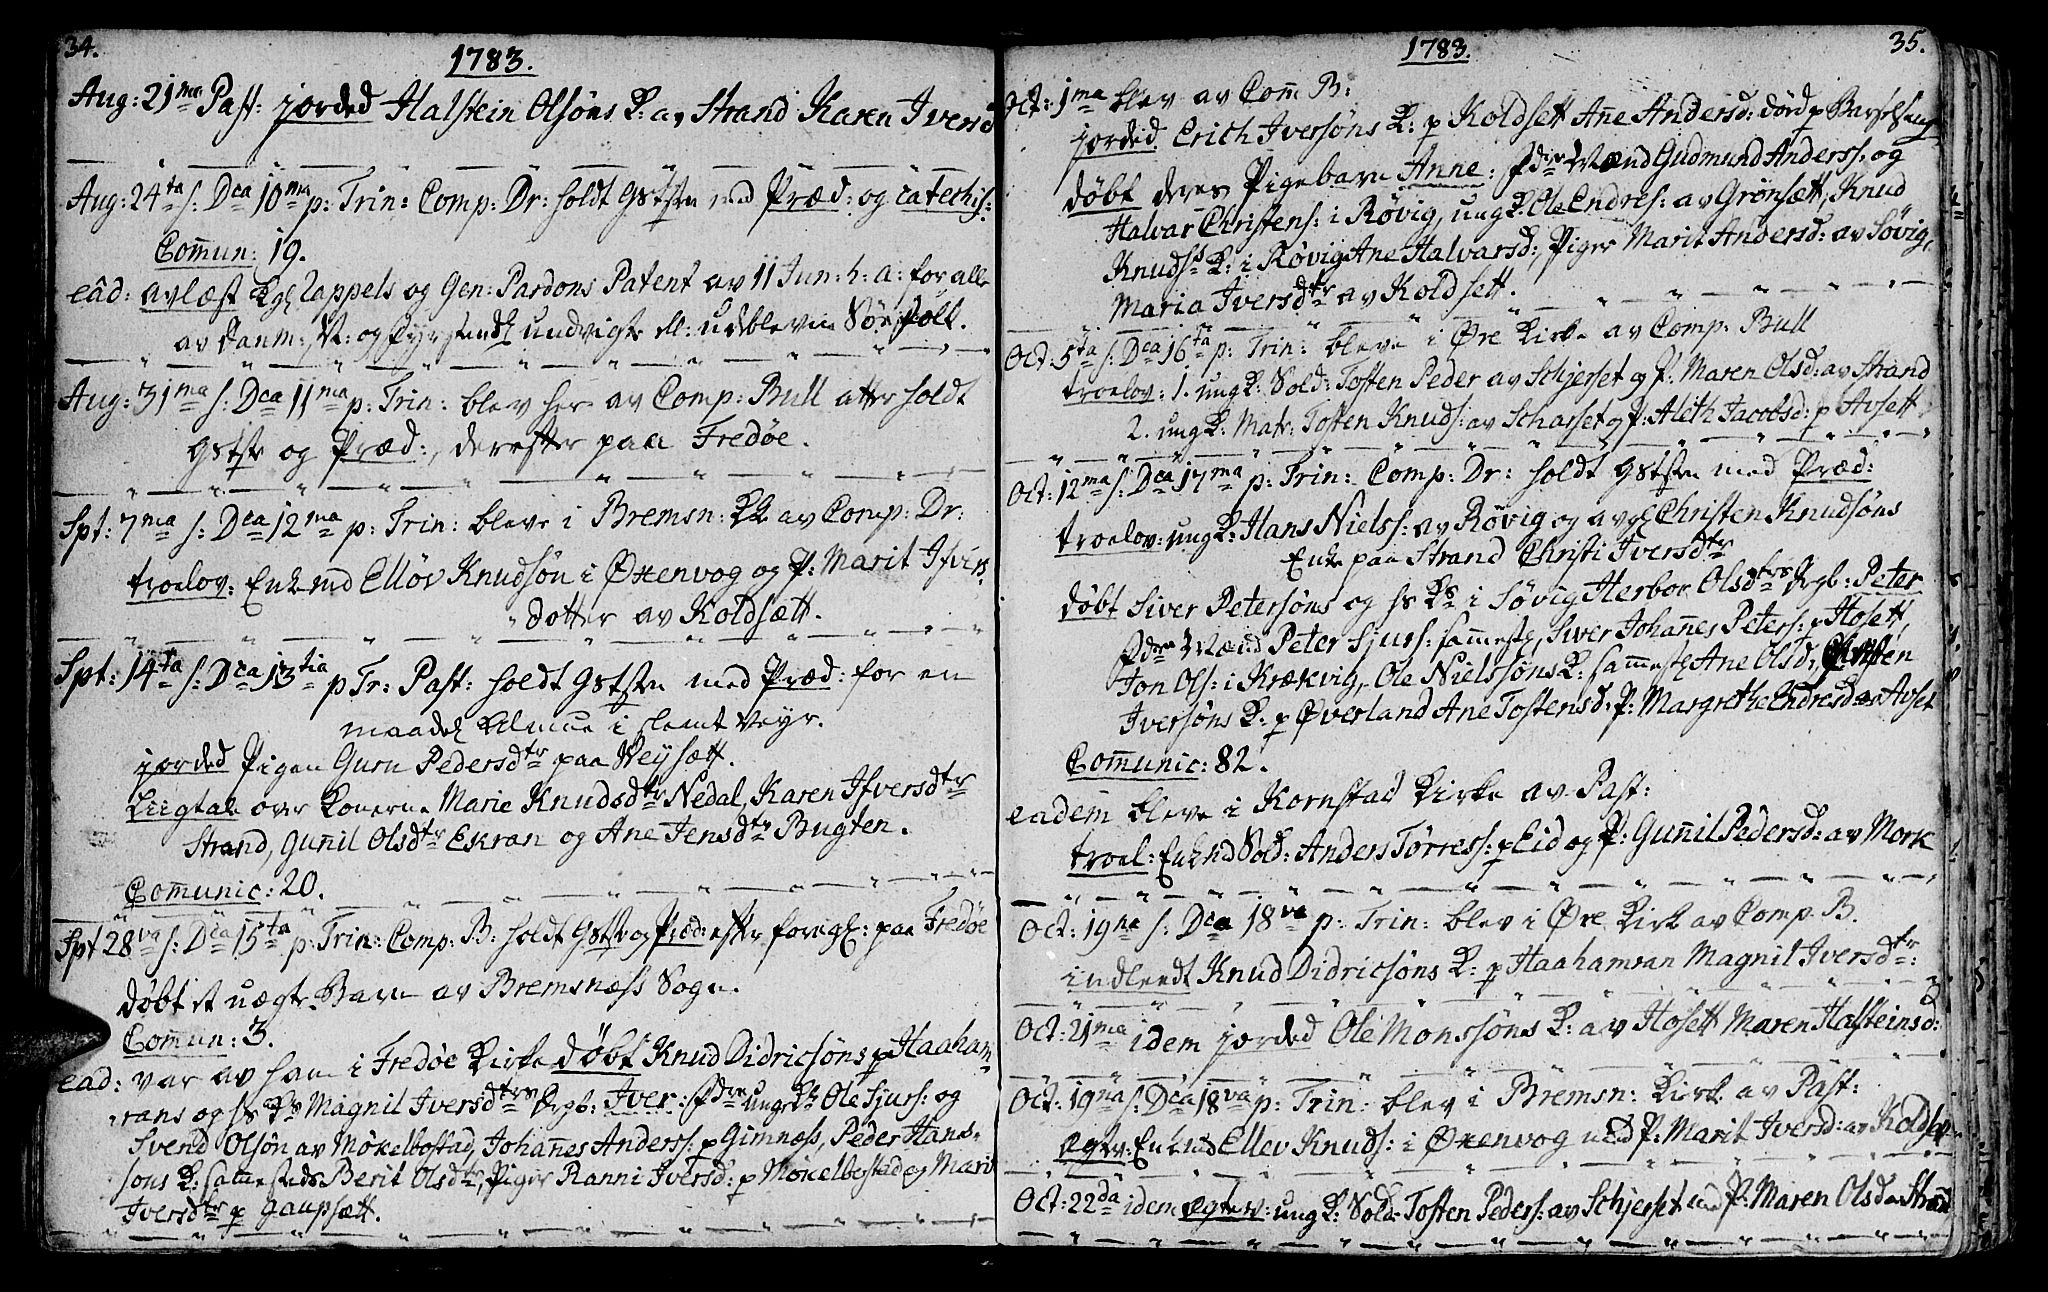 34.
1783.
Aug: 21ma Past: jorded Halstein Olsöns K: av Strand Karen Iversd
Aug: 24ta s: Dca 10ma p: Trin: Comp: Dr: holdt Gstste med Præd: og catechis:
Commun: 19.
eâd: avlæst Kgl Rappels og Gen: Pardons Patent av 11 Jun: h: a: for alle
av Danm: N: og undvigte el: udblevne Söefolk.
Aug: 31ma s: Dca 11ma p: Trin: blev her av Comp: Bull atter holdt
Gstste og Præd:, derefter paa Fredøe.
Spt: 7ma s: Dca 12ma p: Trin: bleve i Bremsn: Kk av Comp: Dr:
troelov: Enkmd Ellöv Knudsön i Øxenvog og P: Marit Ifvirs
dotter av Koldsætt.
Spt: 14ta s: Dca 13tia p Tr: Past: holdt Gstste med Præd: for en
maadel Almue i slemt Veyr.
jorded Pigen Guru Pedersdtr paa Weysætt.
Liigtale over Konerne Marie Knudsdtr Nedal, Karen Ifversdtr
Strand, Gunil Olsdtr Ekran og Ane Jensdtr Bugten.
Communic: 20.
Spt 28va s: Dca 15ta p: Trin: Comp: B: holdt Gstste og Præd: efter forrige: paa Fredöe
döbt et uægte Barn av Bremsnæss Sogn.
Commun: 3.
ead: var av ham i Fredøe Kirke döbt Knud Didricsöns p Haaham
rans og hs Ks Magnil Iversdtrs Drgb: Iver: Fdre ungeKk Ole Sjurs: og
Svend Olsön av Mökelbostad, Johannes Anderss: p Gimnæss, Peder Hans-
sons K: sammesteds Berit Olsdtr, Piger Ranni Iversd: p Mökelbostad og Marit
Iversdtr p Gaupsætt.
1783.
35.
Oct: 1ma blev av Com B:
jorded Erich Iversöns K: p Koldsett Ane Andersd: död p Barselseng
döbt deres Pigebarn Anne: Fdre Mænd Gudmund Anderss: og
Halvar Christens: i Røvig, ungK: Ole Endres: av Grønsætt, Knud
Knudss K: i Røvig Ane Halvarsd: Piger Marit Andersd: av Søvig,
Maria Iversdtr av Koldsett.
Oct: 5ta s: Dca 16ta p: Trin: bleve i Øre Kirke av Comp: Bull
troelov: 1. ungK: Sold: Tosten Peder av Schjerset og P: Maren Olsd: av Strand
2. ungK: Matr: Tosten Knuds: av Scharset og P: Aleth Jacobsd: p Avsett
Oct: 12ma s: Dca 17ma p: Trin: Comp: Dr: holdt Gstste med Præd:
troelov: ungK: Hans Nielss: av Røvig og avgl Christen Knudsöns
Enke paa Strand Christi Iversdtr
döbt Siver Petersöns og hs Ks i Sövig Herbor Olsdtrs Drgb: Peter
Fdre Mænd Peter Sjurs: sammestz, Siver Johannes Peters: p Hosett,
Jon Ols: i Krækvig, Ole Nielssöns K: sammestz Ane Olsd:, Christen
Iversöns K: p Øverland Ane Tostensd: P: Margrethe Endresd av Avset
Communic: 82.
eadem bleve i Kornstad Kirke av Past:
troel: Enkmd Sold: Anders Tørress: p Eid og P: Gunnil Pedersd: av Mork
Oct: 19na s: Dca 18va p: Trin: blev i Øre Kirk av Comp. B.
indleedt Knud Didricsöns K: p Haahamran Magnil Iversdtr:
Oct: 21ma idem jorded Ole Monssöns K: av Hosett Maren Halsteinsd:
Oct: 19na s: Dca 18va p: Trin: blev i Bremsn: Kirk av Past:
egtev: Enkmd Ellev Knuds: i Øxenvog med P: Marit Iversd: av Koldset
Oct: 22da idem egtev: ungK: Sold: Tosten Peders: av Schjerset med P: Maren Olsd av Strand